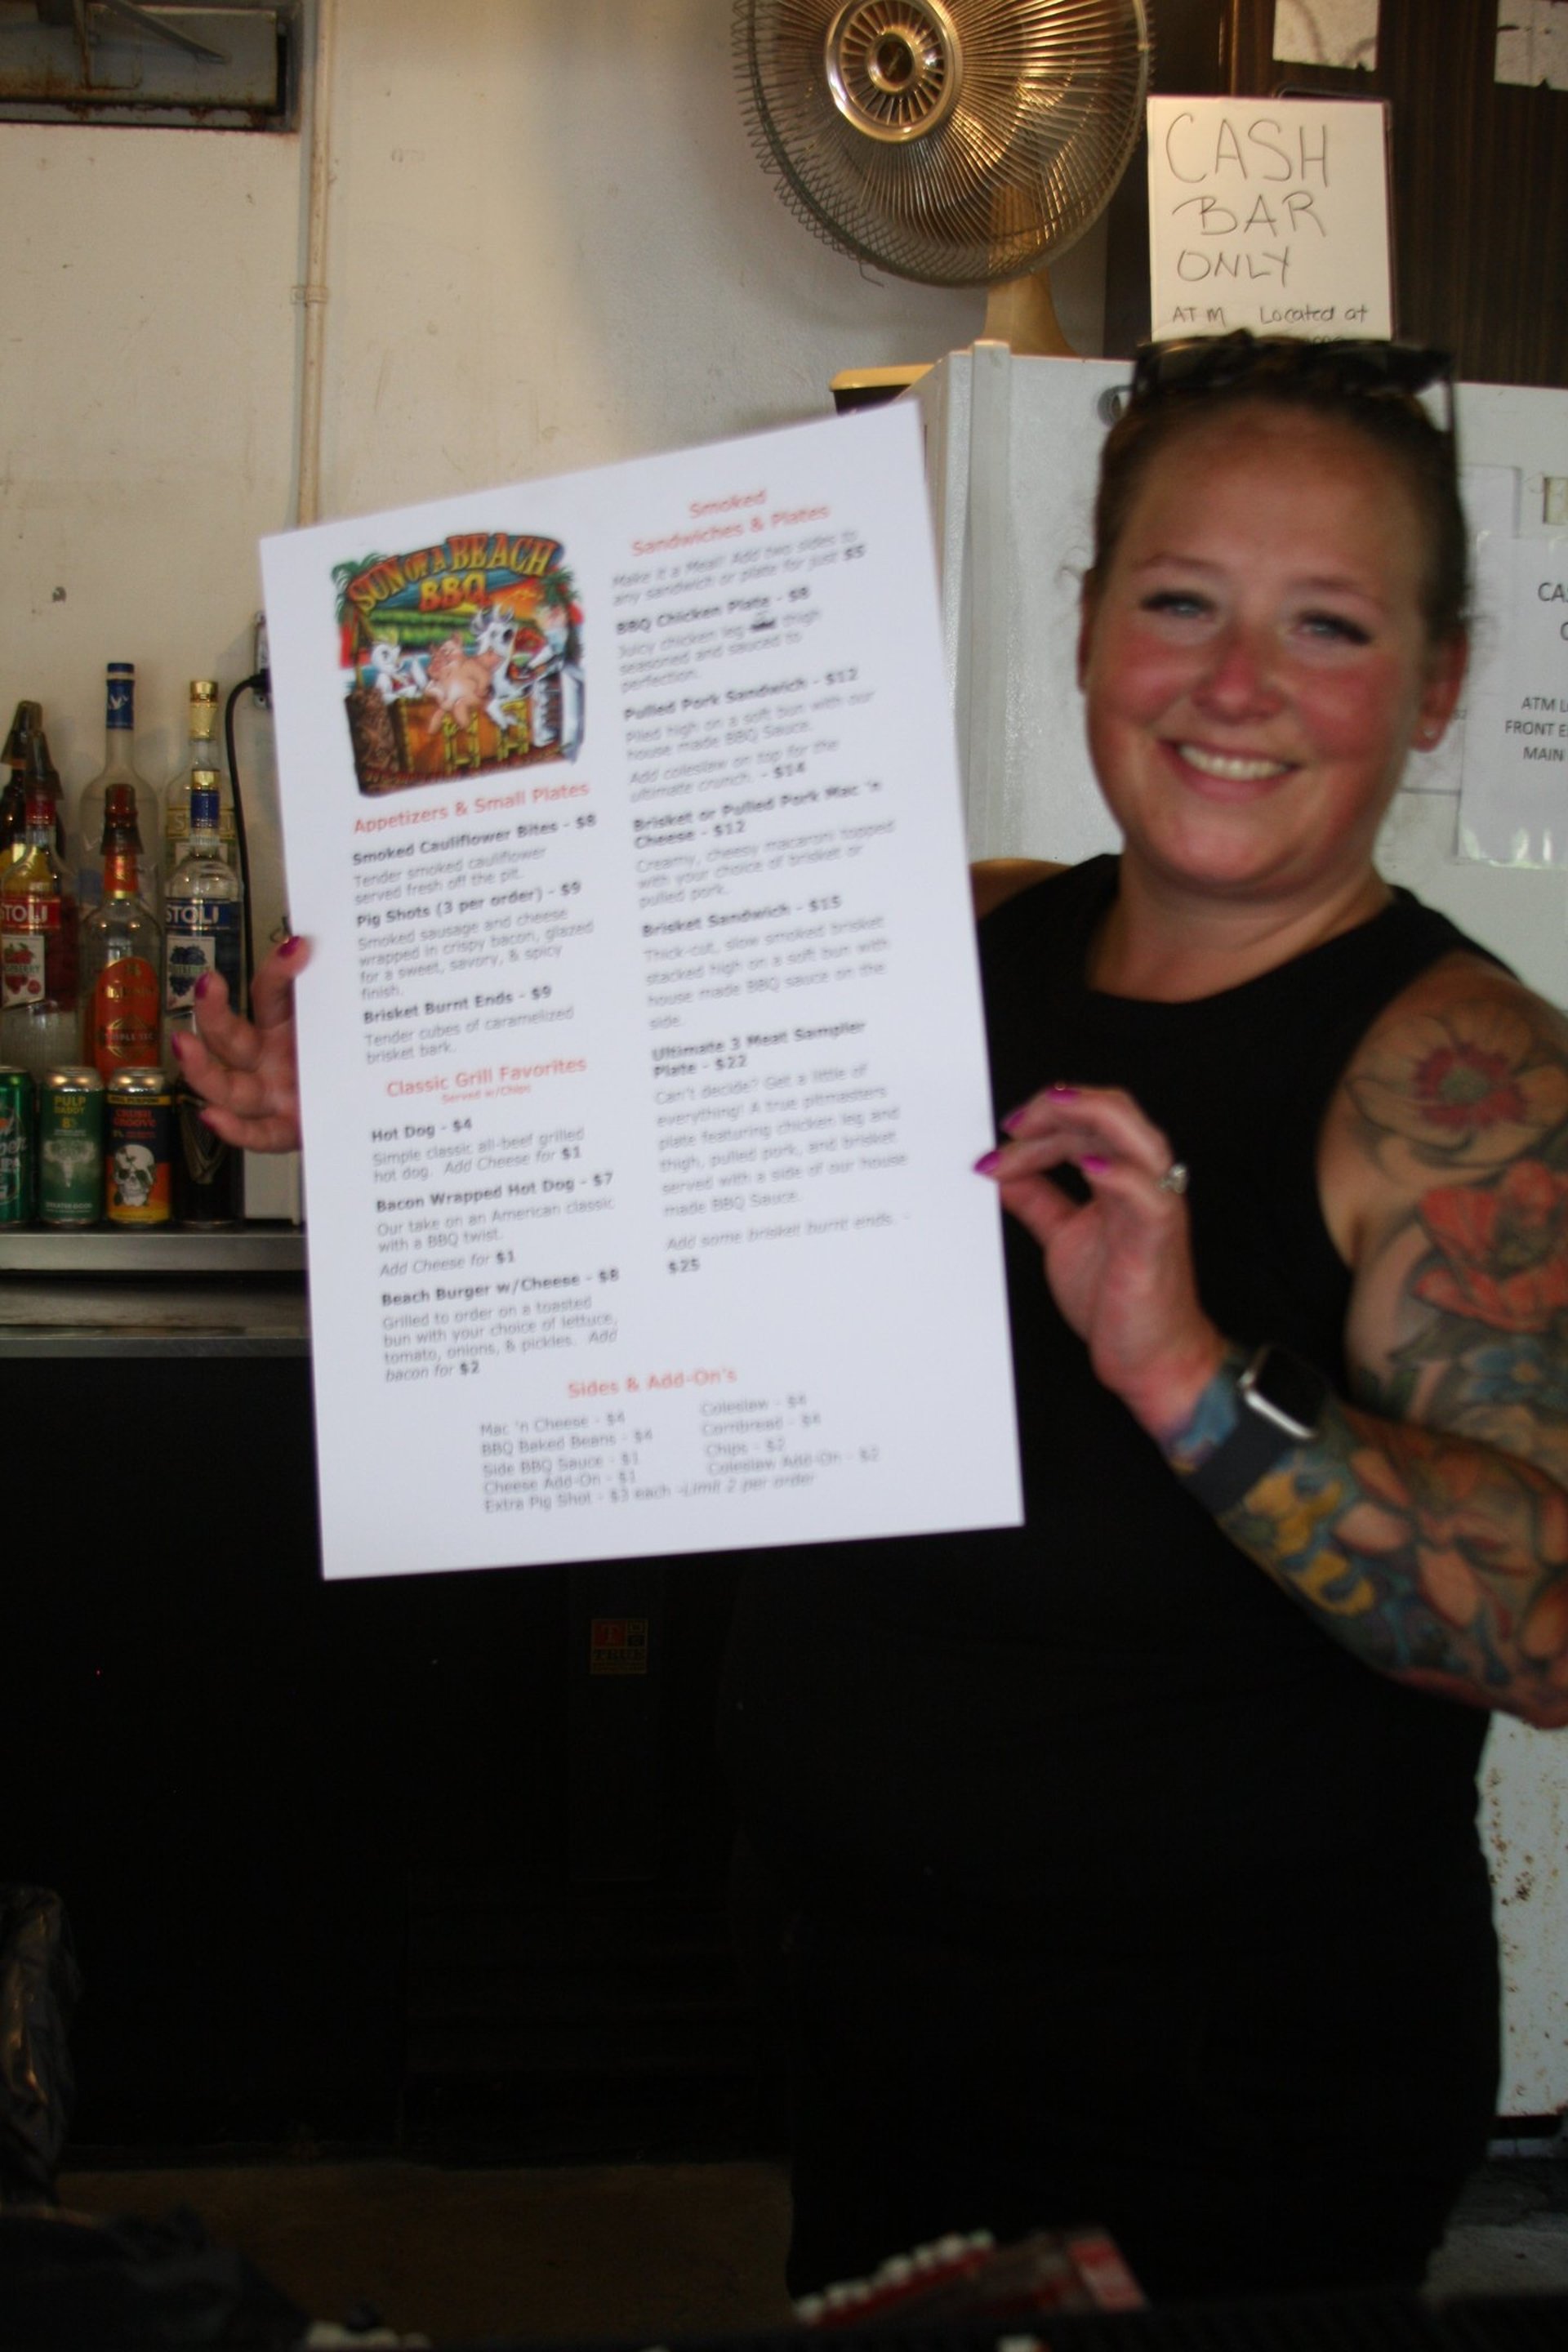 CASH
BAR
ONLY
ATM Located at
SUN OF A BEACH
BBQ
Appetizers & Small Plates
Smoked Cauliflower Bites - $8
Tender smoked cauliflower
served fresh off the pit.
Pig Shots (3 per order) - $9
Smoked sausage and cheese
wrapped in crispy bacon, glazed
for a sweet, savory, & spicy
finish.
Brisket Burnt Ends - $9
Tender cubes of caramelized
brisket bark.
Classic Grill Favorites
Served w/Chips
Hot Dog - $4
Simple classic all-beef grilled
hot dog. Add Cheese for $1
Bacon Wrapped Hot Dog - $7
Our take on an American classic
with a BBQ twist.
Add Cheese for $1
Beach Burger w/Cheese - $8
Grilled to order on a toasted
bun with your choice of lettuce,
tomato, onions, & pickles. Add
bacon for $2
Smoked
Sandwiches & Plates
Make it a Meal! Add two sides to
any sandwich or plate for just $5
BBQ Chicken Plate - $8
Juicy chicken leg thigh
seasoned and sauced to
perfection.
Pulled Pork Sandwich - $12
Piled high on a soft bun with our
house made BBQ Sauce.
Add coleslaw on top for the
ultimate crunch. - $14
Brisket or Pulled Pork Mac 'n
Cheese - $12
Creamy, cheesy macaroni topped
with your choice of brisket or
pulled pork.
Brisket Sandwich - $15
Thick-cut, slow smoked brisket
stacked high on a soft bun with
house made BBQ sauce on the
side.
Ultimate 3 Meat Sampler
Plate - $22
Can't decide? Get a little of
everything! A true pitmasters
plate featuring chicken leg and
thigh, pulled pork, and brisket
served with a side of our house
made BBQ Sauce.
Add some brisket burnt ends. -
$25
Sides & Add-On's
Mac 'n Cheese - $4
BBQ Baked Beans - $4
Side BBQ Sauce - $1
Cheese Add-On - $1
Extra Pig Shot - $3 each -Limit 2 per order
Coleslaw - $4
Cornbread - $4
Chips - $2
Coleslaw Add-On - $2
STOLI
STOLI
PULP
DADDY
8%
CRUSH
GROOVE
TRUE
ATM L
FRONT E
MAIN